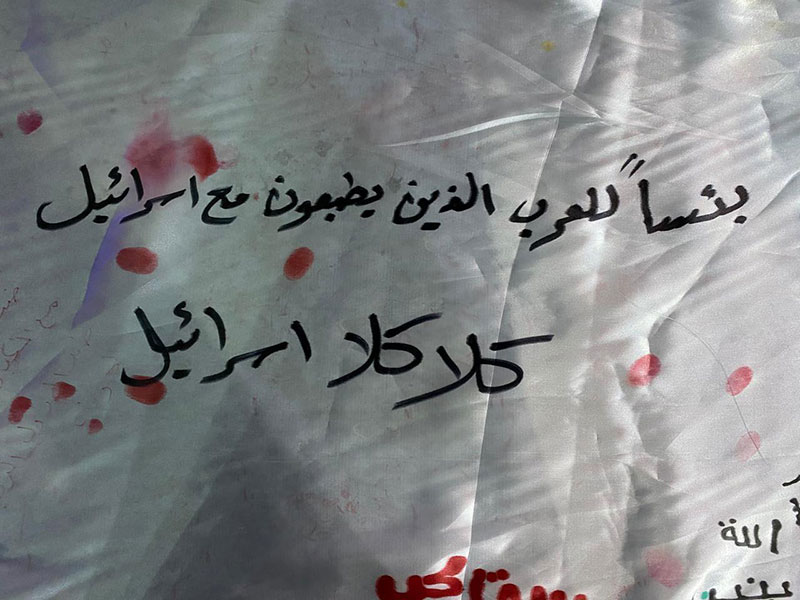 بئساً للعرب الذين يطبعون مع اسرائيل
كلا كلا اسرائيل